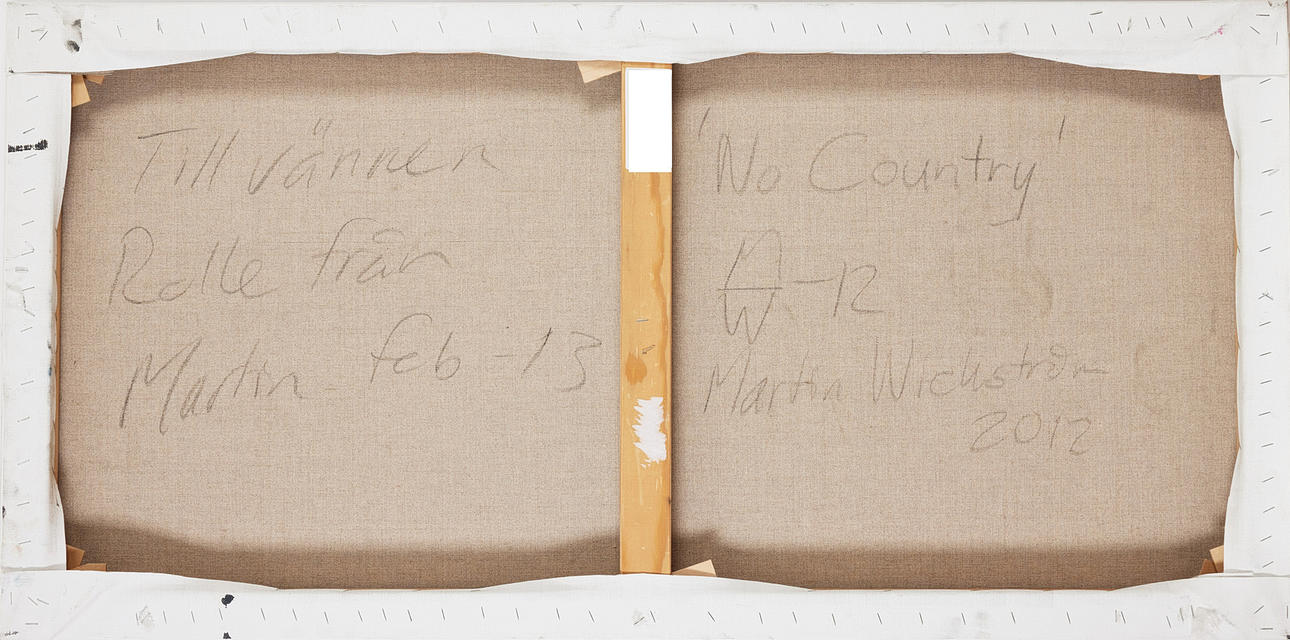 Till vännen
Rolle från
Martin - feb -13
'No Country'
M
W -12
Martin Wickström
2012